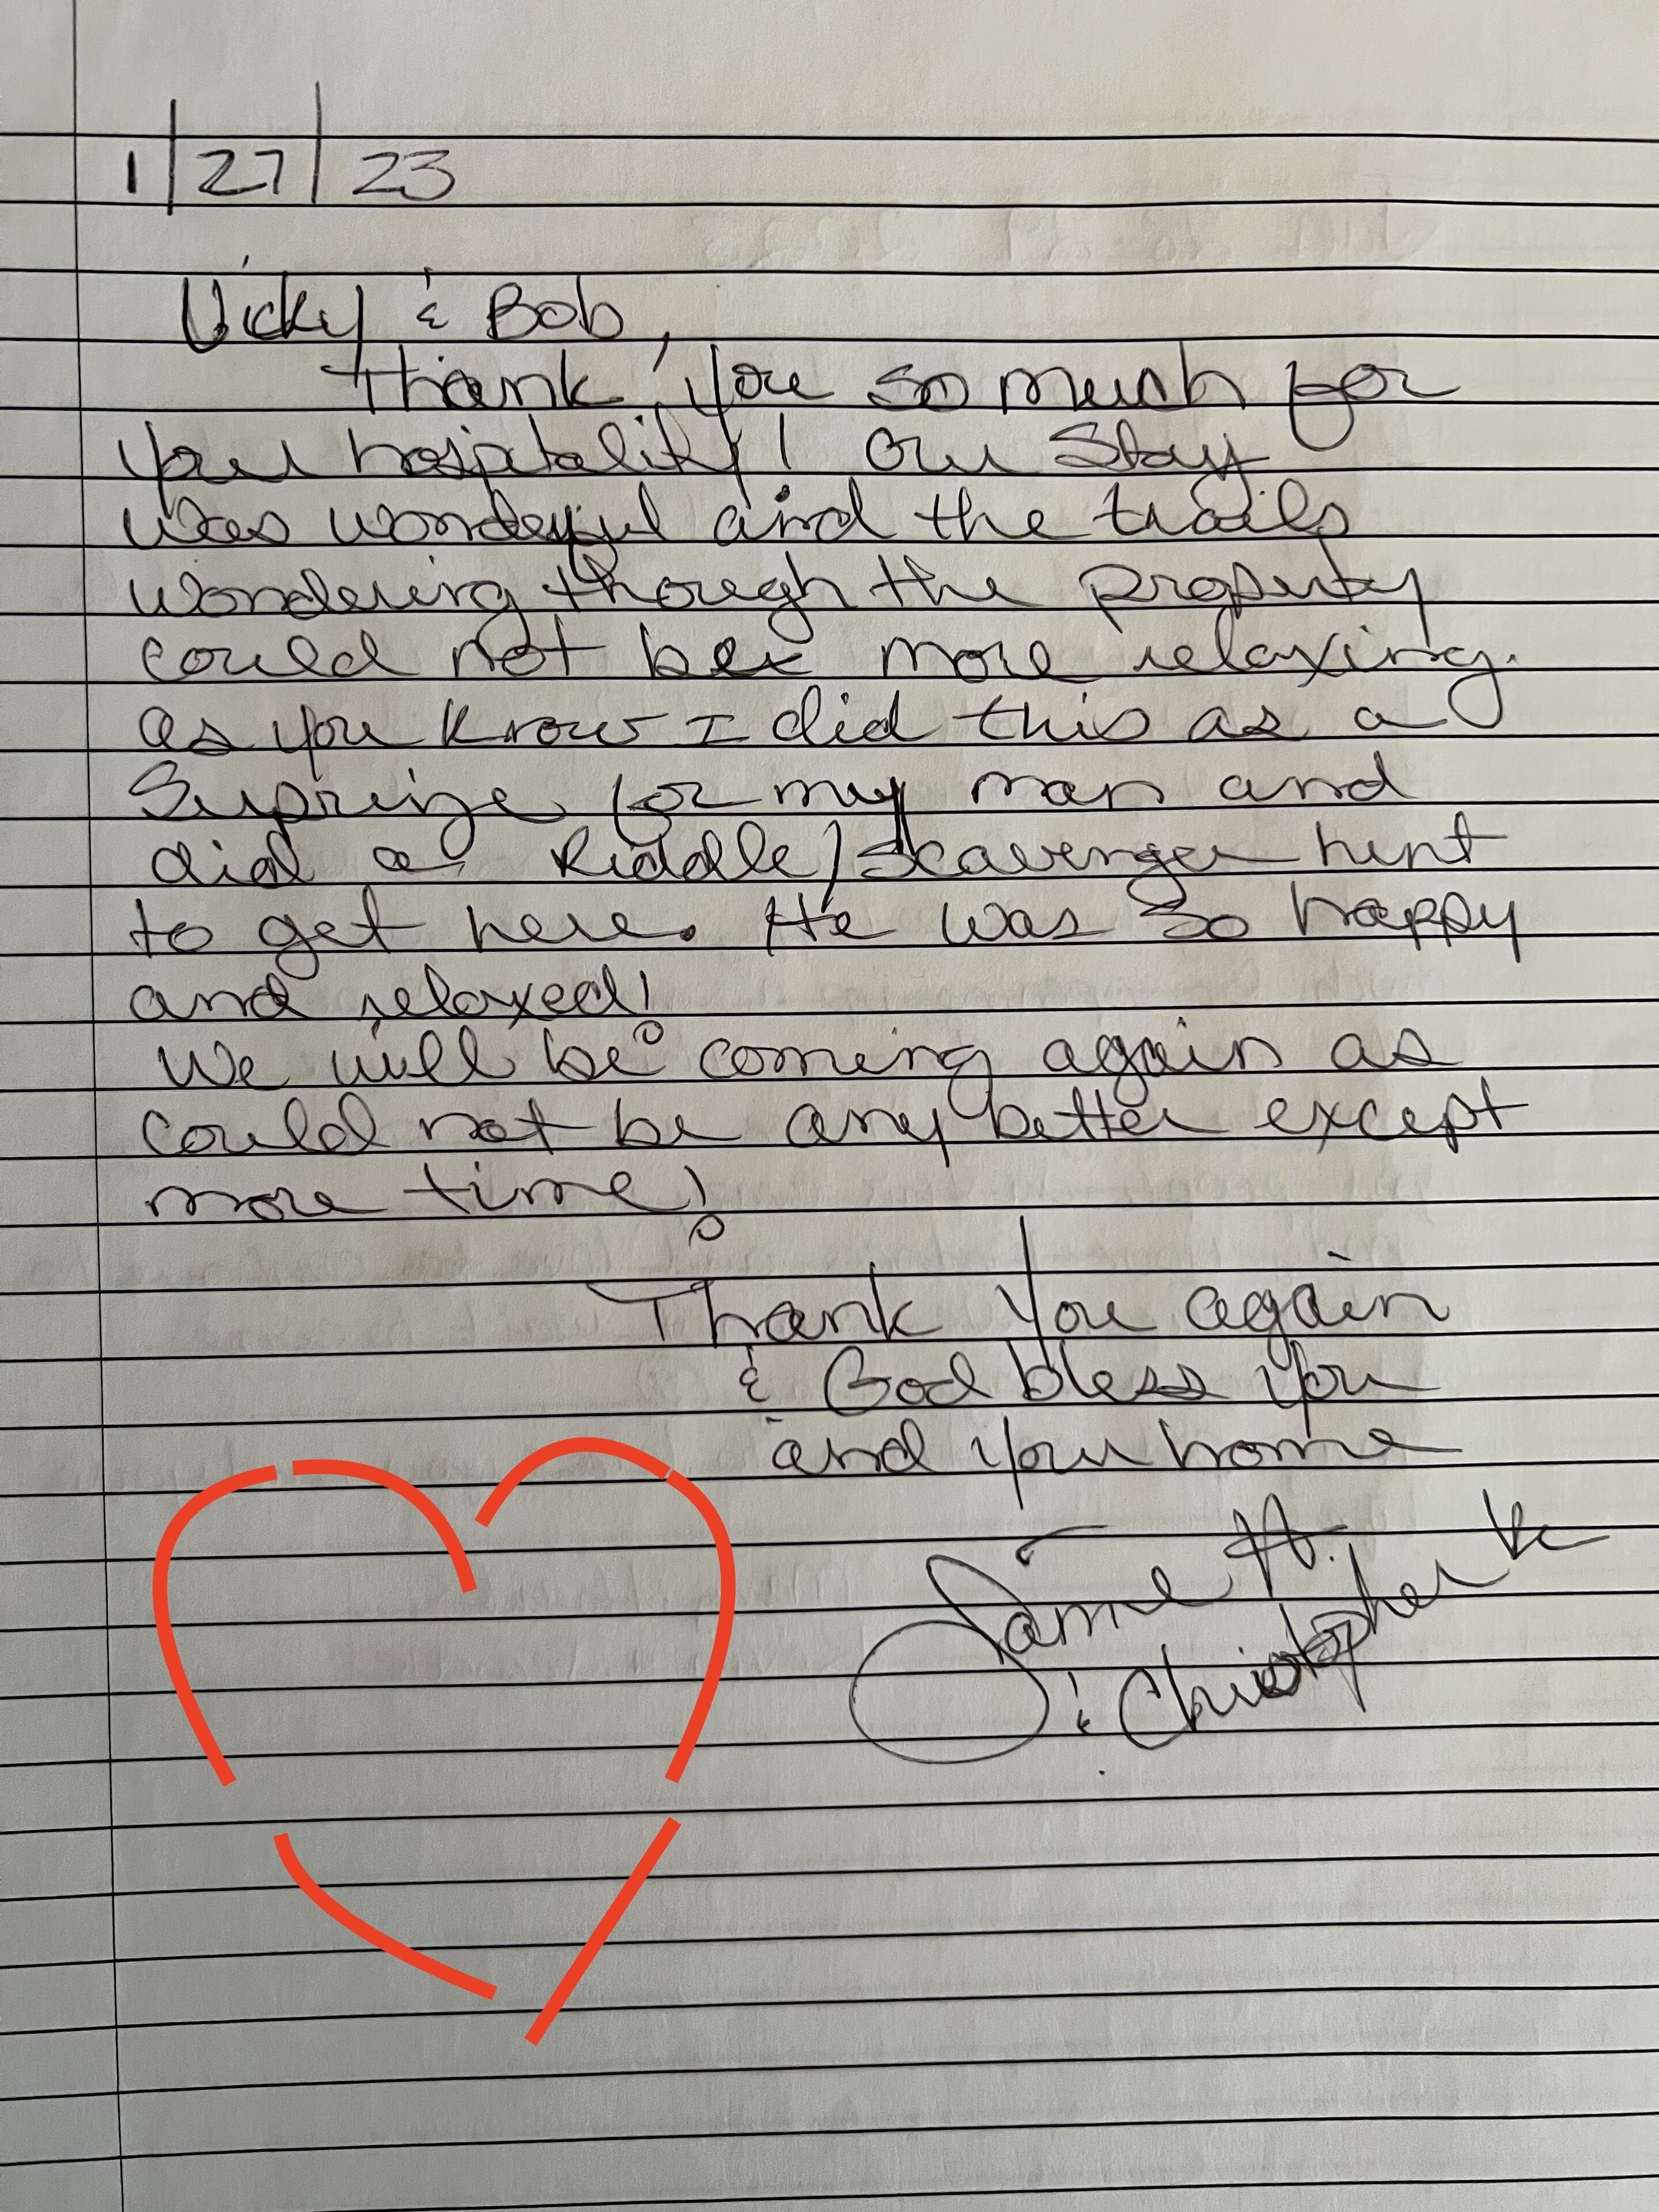 1/27/23
Vicky & Bob,
Thank you so much for
your hospitality! Our stay
was wonderful and the trails
wondering though the property
could not be more relaxing.
as you know I did this as a
Suprize for my man and
did a Riddle/Scavenger hunt
to get here. He was so happy
and relaxed!
We will be coming again as
could not be any better except
more time!
Thank you again
& God bless you
and your home
Jamie H.
& Christopher K